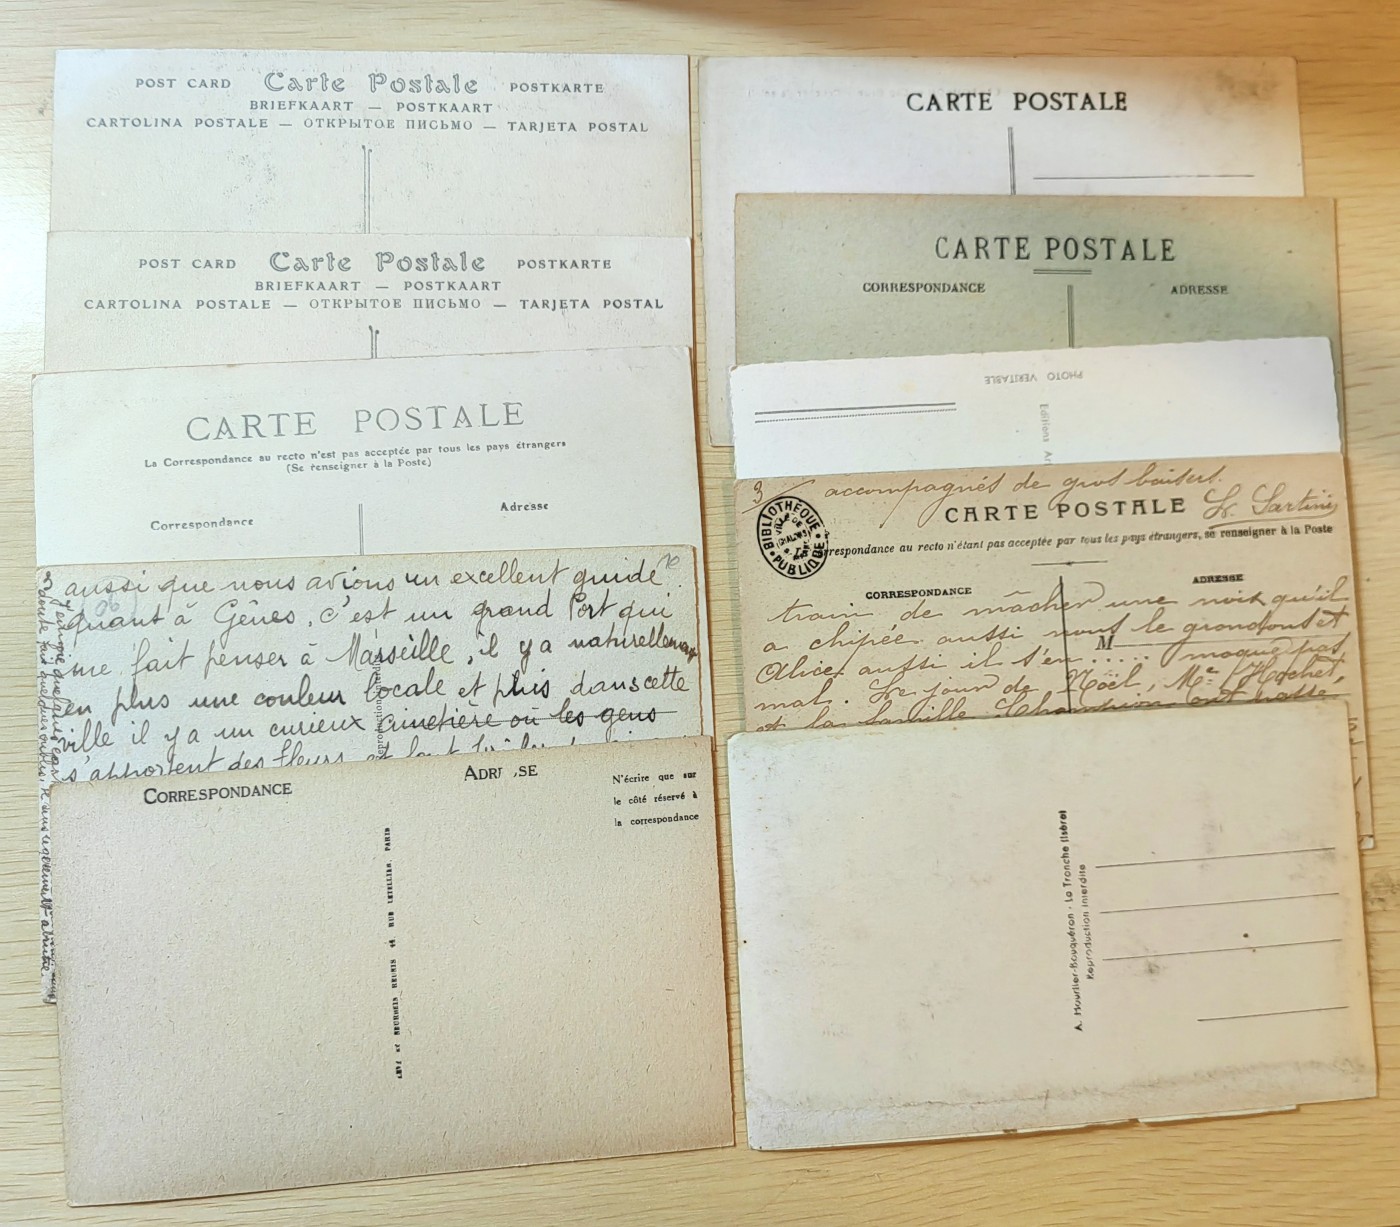 POST CARD Carte Postale POSTKARTE
BRIEFKAART — POSTKAART
CARTOLINA POSTALE — ОТКРЫТОЕ ПИСЬМО — TARJETA POSTAL
POST CARD Carte Postale POSTKARTE
BRIEFKAART — POSTKAART
CARTOLINA POSTALE — ОТКРЫТОЕ ПИСЬМО — TARJETA POSTAL
CARTE POSTALE
La Correspondance au recto n'est pas acceptée par tous les pays étrangers
(Se renseigner à la Poste)
Correspondance
Adresse
aussi que nous avions un excellent guide.
quant à Gênes, c'est un grand Port qui
me fait penser à Marseille, il y a naturellement
en plus une couleur locale et puis dans cette
ville il y a un curieux cimetière où les gens
s'apportent des fleurs et
CORRESPONDANCE
ADRESSE
N'écrire que sur
le côté réservé à
la correspondance
RUE LETELLIER, PARIS
CARTE POSTALE
CARTE POSTALE
CORRESPONDANCE
ADRESSE
PHOTO VERITABLE
Editions
3
accompagnés de gros baisers.
CARTE POSTALE
BIBLIOTHÈQUE PUBLIQUE
VILLE DE
Correspondance au recto n'étant pas acceptée par tous les pays étrangers, se renseigner à la Poste
CORRESPONDANCE
ADRESSE
M
train de mâcher une noix qu'il
a chipée aussi nous le grondons et
Alice aussi il s'en ..... moque pas
mal. Le jour de Noël, Me
et la famille Champion ont
A. Mourlier-Bouquéron - La Tronche (Isère)
Reproduction interdite